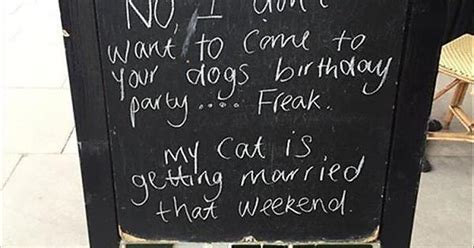 NO, I don't
want to come to
your dogs birthday
party.... Freak.
My cat is
getting married
that weekend.